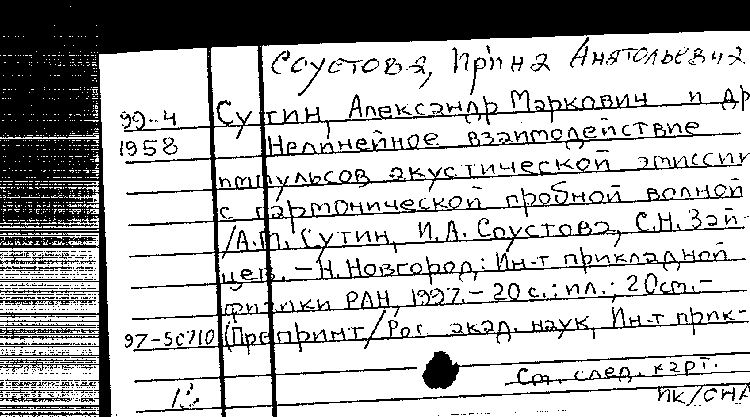 Соустова, Ирина Анатольевна
99-4 Сутин, Александр Маркович и др
1958 Нелинейное взаимодействие
импульсов акустической эмиссии
с гармонической пробной волной
/А.М. Сутин, И.А. Соустова, С.Н. Зай-
цев. - Н. Новгород: Ин-т прикладной
физики РАН, 1997. - 20 с.: ил.; 20 см. -
97-50710 (Препринт/Рос. акад. наук, Ин-т прик-
См. след. карт.
ПК/ОНА